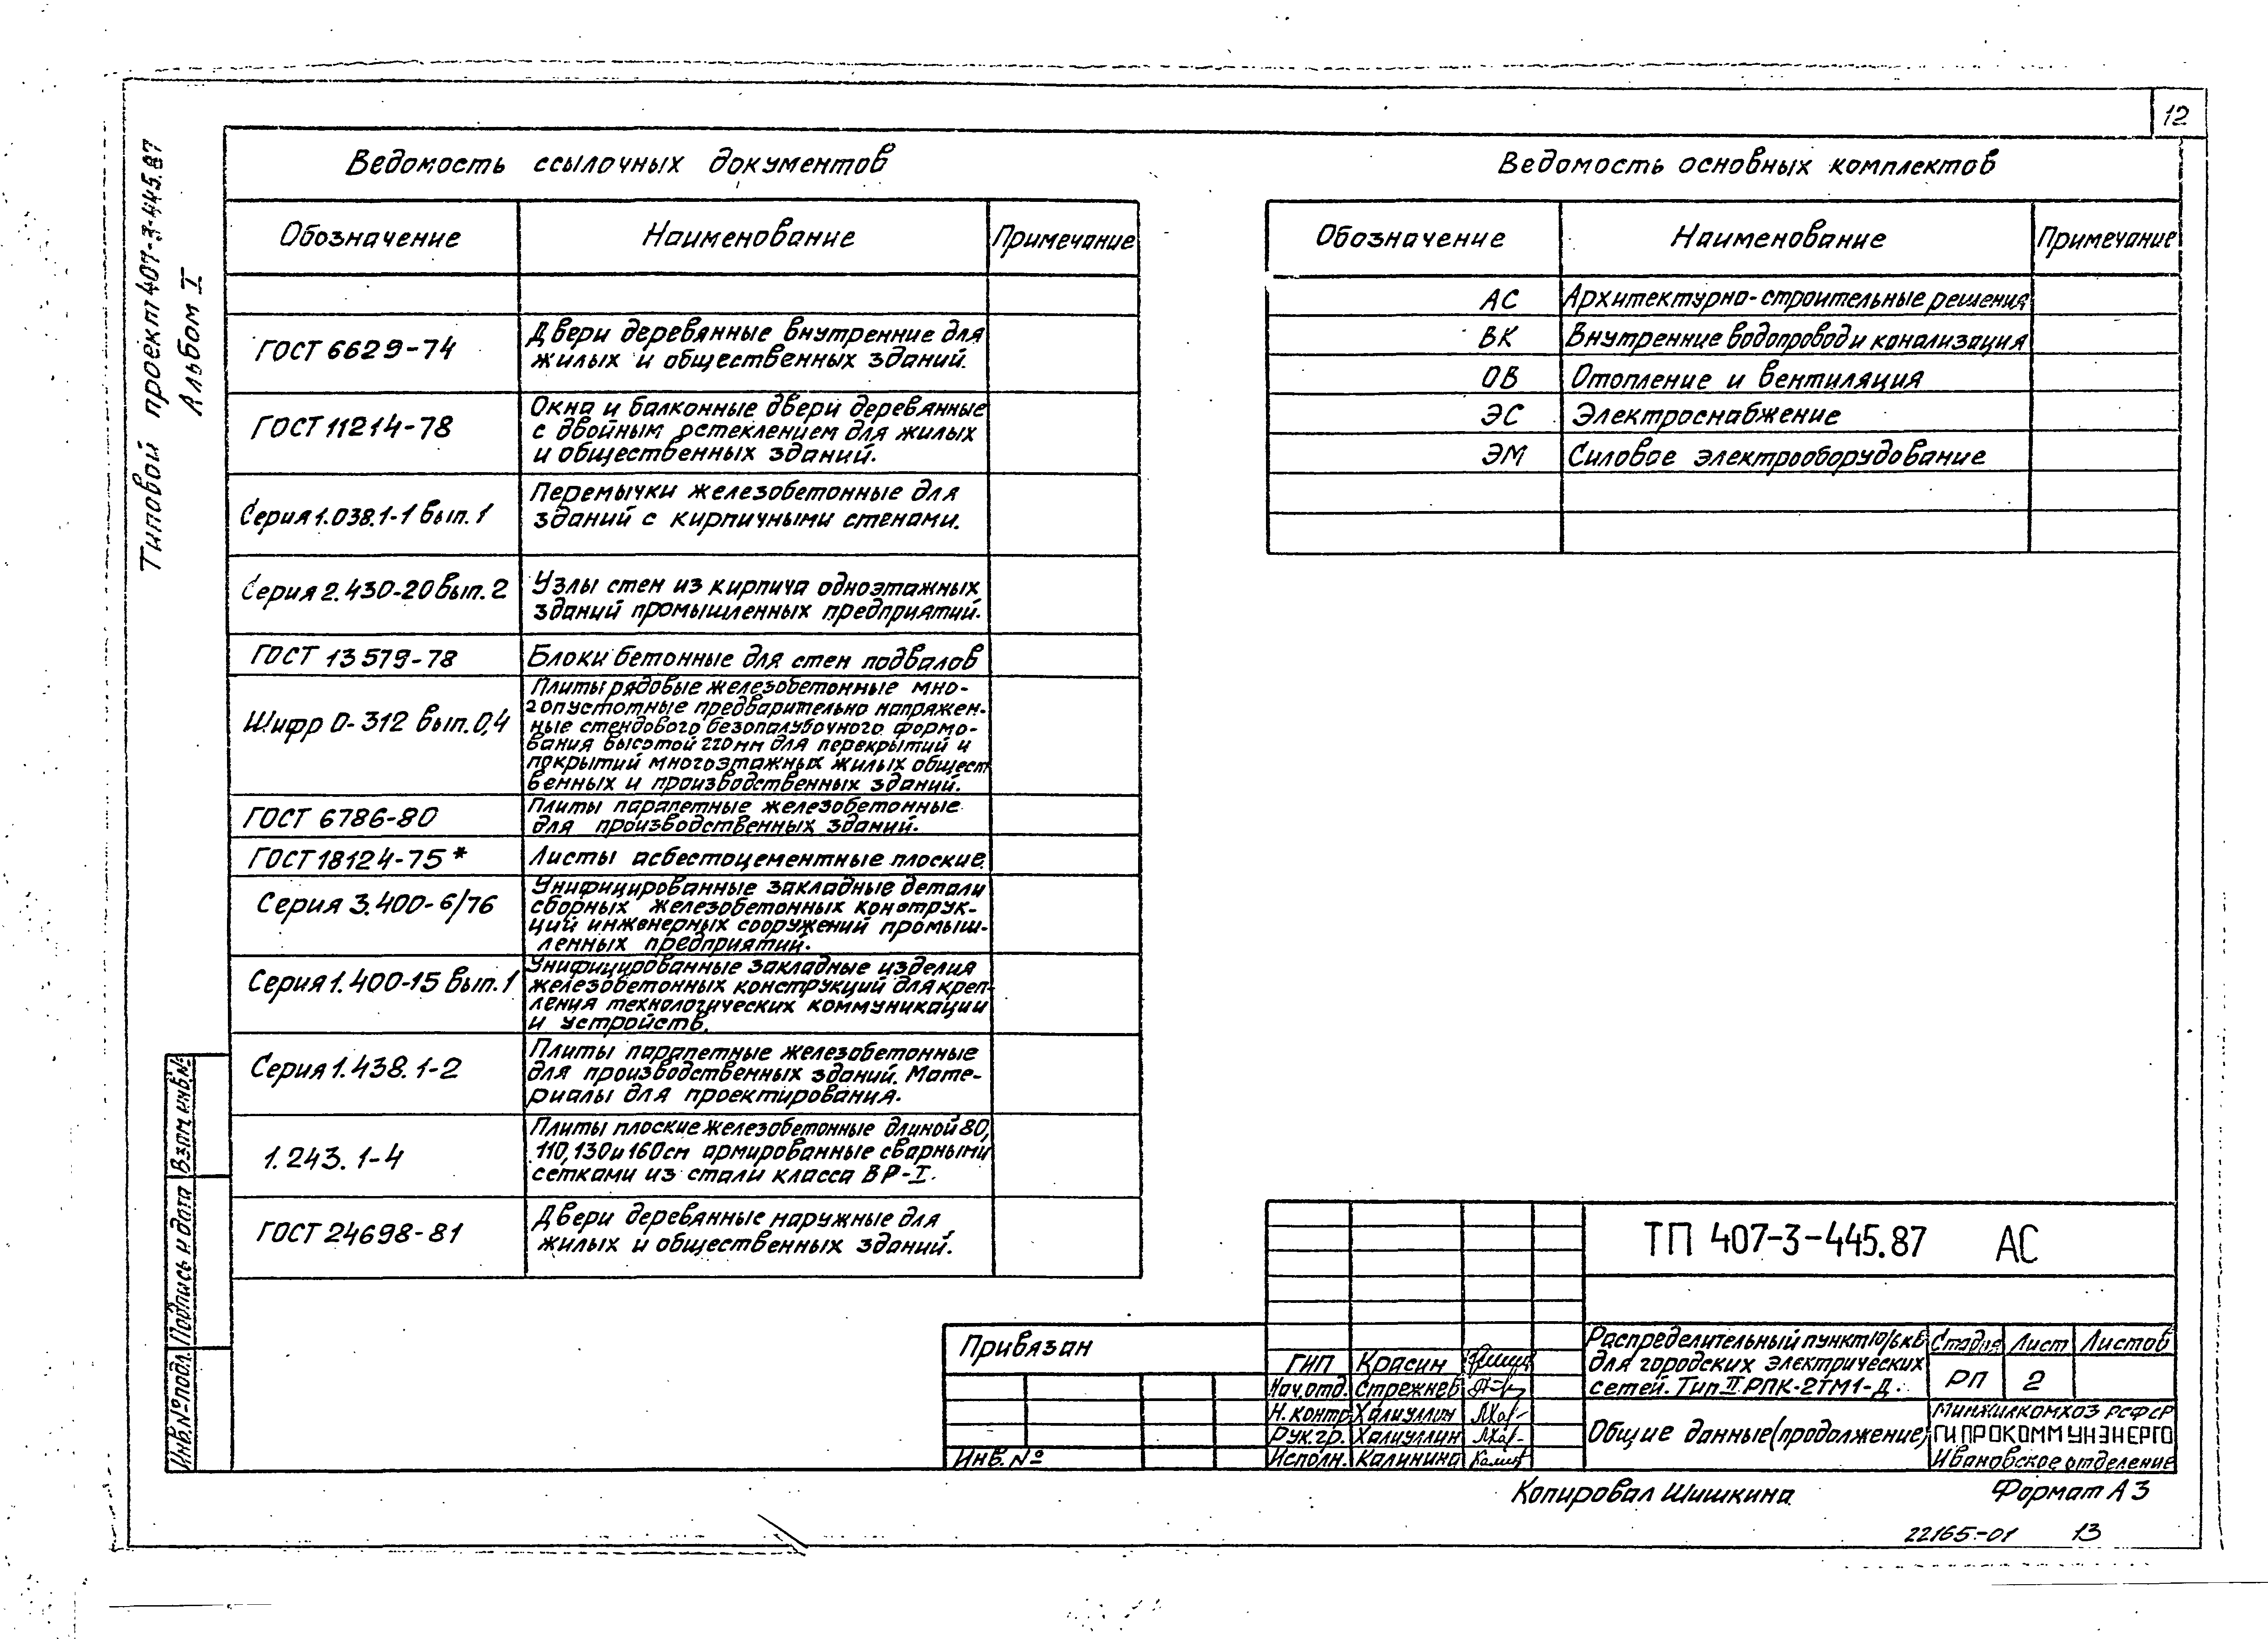 12
Типовой проект 407-3-445.87
Альбом I
Ведомость ссылочных документов
Обозначение Наименование Примечание
ГОСТ 6629-74
Двери деревянные внутренние для
жилых и общественных зданий.
ГОСТ 11214-78
Окна и балконные двери деревянные
с двойным остеклением для жилых
и общественных зданий.
Серия 1.038.1-1 вып. 1
Перемычки железобетонные для
зданий с кирпичными стенами.
Серия 2.430-20 вып. 2
Узлы стен из кирпича одноэтажных
зданий промышленных предприятий.
ГОСТ 13579-78
Блоки бетонные для стен подвалов
Шифр 0-312 вып. 0,4
Плиты рядовые железобетонные мно-
гопустотные предварительно напряжен-
ные стендового безопалубочного формо-
вания высотой 220мм для перекрытий и
покрытий многоэтажных жилых общест
венных и производственных зданий.
ГОСТ 6786-80
Плиты парапетные железобетонные
для производственных зданий.
ГОСТ 18124-75*
Листы асбестоцементные плоские.
Серия 3.400-6/76
Унифицированные закладные детали
сборных железобетонных конструк-
ций инженерных сооружений промыш-
ленных предприятий.
Серия 1.400-15 вып. 1
Унифицированные закладные изделия
железобетонных конструкций для креп-
ления технологических коммуникации
и устройств.
Серия 1.438.1-2
Плиты парапетные железобетонные
для производственных зданий. Мате-
риалы для проектирования.
1.243.1-4
Плиты плоские железобетонные длиной 80,
110, 130 и 160см армированные сварными
сетками из стали класса ВР-I.
ГОСТ 24698-81
Двери деревянные наружные для
жилых и общественных зданий.
Ведомость основных комплектов
Обозначение Наименование Примечание
АС Архитектурно-строительные решения
ВК Внутренние водопровод и канализация
ОВ Отопление и вентиляция
ЭС Электроснабжение
ЭМ Силовое электрооборудование
Взам инв.№
Подпись и дата
Инв.№ подл.
Привязан
Инв. №
ТП 407-3-445.87 АС
ГИП Красин
Нач.отд. Стрежнев
Н. контр Халиуллин
Рук.гр. Халиуллин
Исполн. Калинина
Распределительный пункт 10/6кВ
для городских электрических
сетей. Тип II РПК-2ТМ1-Д.
Стадия Лист Листов
РП 2
Общие данные (продолжение)
Минжилкомхоз РСФСР
ГИПРОКОММУНЭНЕРГО
Ивановское отделение
Копировал Шишкина
Формат А3
22165-01 13